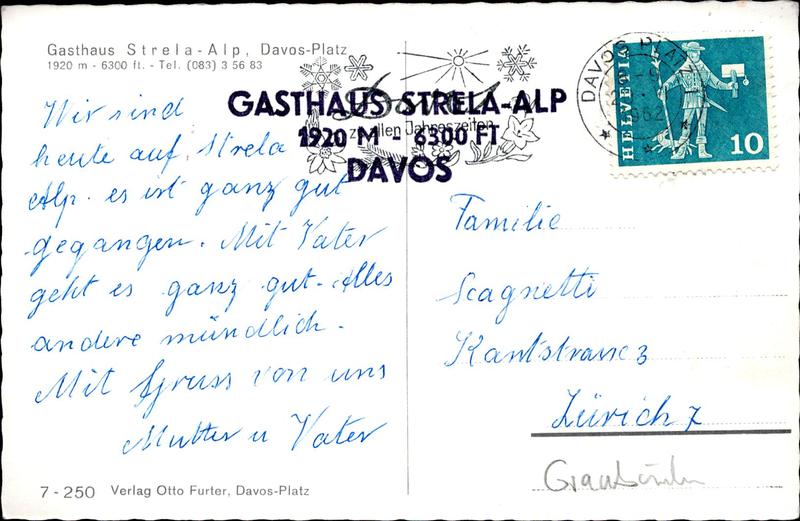 Gasthaus Strela-Alp, Davos-Platz
1920 m - 6300 ft. - Tel. (083) 3 56 83
GASTHAUS STRELA-ALP
1920 M - 6300 FT
DAVOS
Davos
zu allen Jahreszeiten
DAVOS PLATZ
1962
HELVETIA
10
Wir sind
heute auf Strela
Alp. es ist ganz gut
gegangen. Mit Vater
geht es ganz gut. Alles
andere mündlich.
Mit Gruss von uns
Mutter u Vater
Familie
Scagnetti
Kantstrasse 3
Zürich 7
Graubünden
7 - 250 Verlag Otto Furter, Davos-Platz